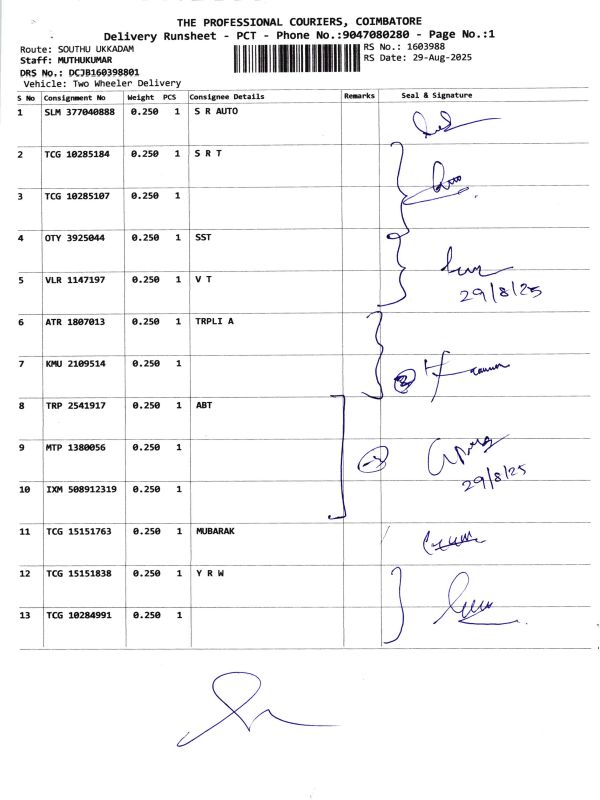 THE PROFESSIONAL COURIERS, COIMBATORE
Delivery Runsheet - PCT - Phone No.:9047080280 - Page No.:1
Route: SOUTHU UKKADAM RS No.: 1603988
Staff: MUTHUKUMAR RS Date: 29-Aug-2025
DRS No.: DCJB160398801
Vehicle: Two Wheeler Delivery
S No Consignment No Weight PCS Consignee Details Remarks Seal & Signature
1 SLM 377040888 0.250 1 S R AUTO
2 TCG 10285184 0.250 1 S R T
3 TCG 10285107 0.250 1
4 OTY 3925044 0.250 1 SST
5 VLR 1147197 0.250 1 V T
29/8/25
6 ATR 1807013 0.250 1 TRPLI A
7 KMU 2109514 0.250 1
8 TRP 2541917 0.250 1 ABT
9 MTP 1380056 0.250 1
29/8/25
10 IXM 508912319 0.250 1
11 TCG 15151763 0.250 1 MUBARAK
12 TCG 15151838 0.250 1 Y R W
13 TCG 10284991 0.250 1